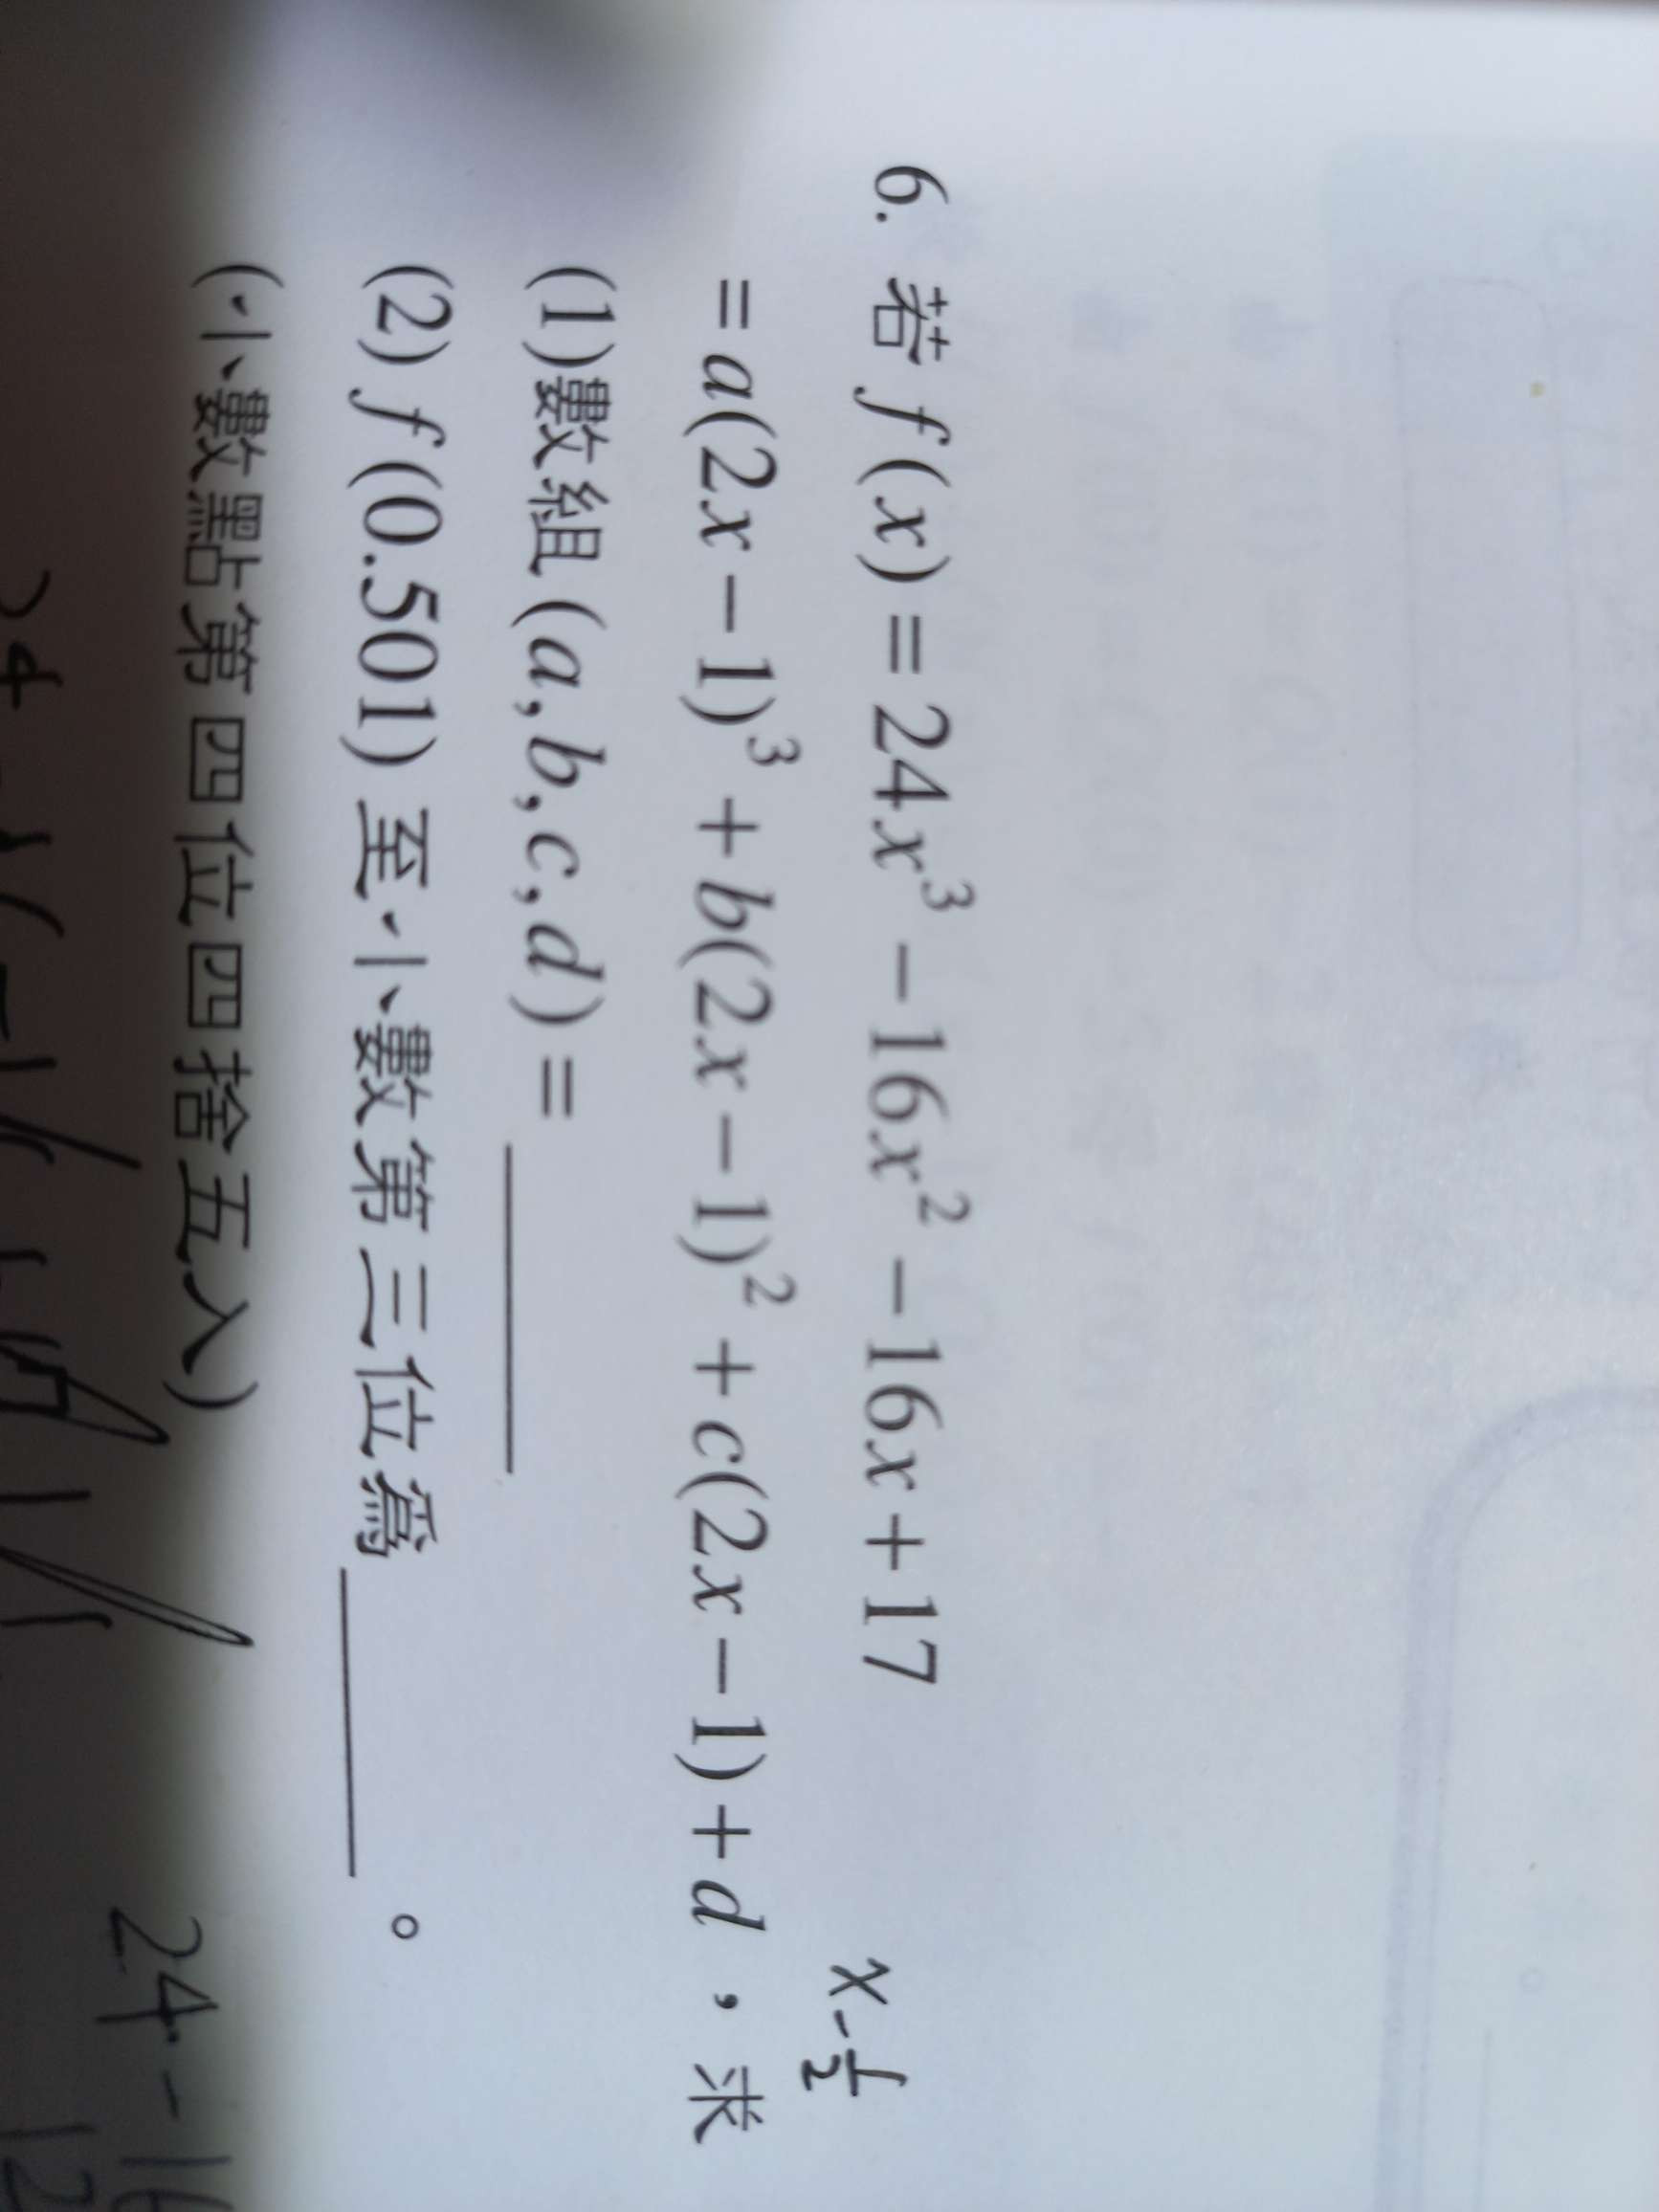 6. 若 f(x) = 24x³ − 16x² − 16x + 17
x - 1/2
= a(2x − 1)³ + b(2x − 1)² + c(2x − 1) + d，求
(1)數組 (a,b,c,d) = ______
(2) f(0.501) 至小數第三位為 ______ 。
(小數點第四位四捨五入)
24 - 16
12